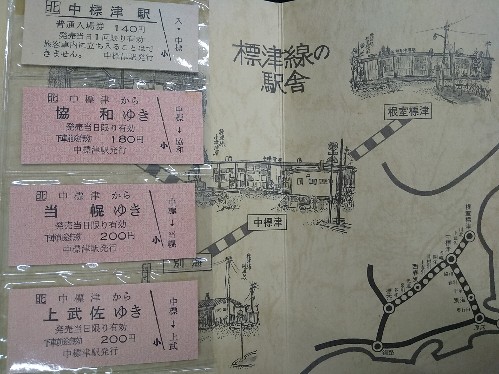 中標津駅
普通入場券 140円
発売当日1回限り有効
旅客車内に立ち入ることはで
きません。 中標津駅発行
小
中標津から
協和ゆき
発売当日限り有効
下車前途無効 180円
中標津駅発行
小
中標津↓協和
中標津から
当幌ゆき
発売当日限り有効
下車前途無効 200円
中標津駅発行
小
中標津↓当幌
中標津から
上武佐ゆき
発売当日限り有効
下車前途無効 200円
中標津駅発行
小
中標津↓上武
標津線の
駅舎
根室標津
中標津
別海